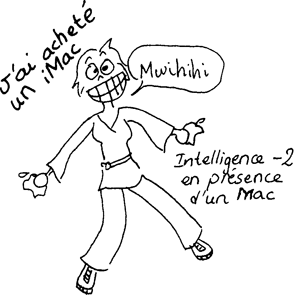 J'ai acheté
un iMac
Mwihihi
Intelligence -2
en présence
d'un Mac